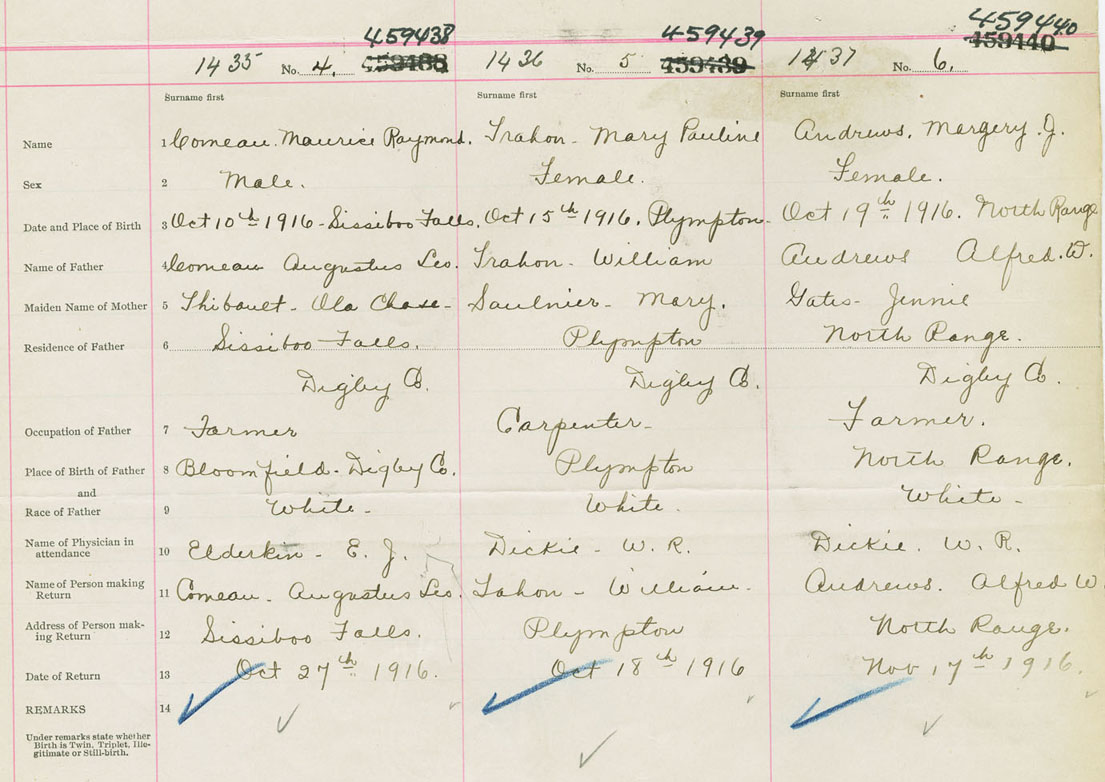 459438 459439 45944.40
1435 No. 4. 459438 1436 No. 5 459439 1437 No. 6. 459440
Surname first Surname first Surname first
Name 1 Comeau. Maurice Raymond. Trahon - Mary Pauline Andrews. Margery. J.
Sex 2 Male. Female. Female.
Date and Place of Birth 3 Oct 10th 1916 - Sissiboo Falls. Oct 15th 1916. Plympton - Oct 19th 1916. North Range
Name of Father 4 Comeau Augustus Leo. Trahon - William Andrews Alfred. W.
Maiden Name of Mother 5 Thibault - Ola Chase - Saulnier - Mary. Gates - Jennie
Residence of Father 6 Sissiboo Falls. Plympton North Range.
Digby Co. Digby Co. Digby Co.
Occupation of Father 7 Farmer Carpenter - Farmer.
Place of Birth of Father 8 Bloomfield - Digby Co. Plympton North Range.
and
Race of Father 9 White - White. White -
Name of Physician in
attendance 10 Elderkin - E. J. Dickie - W. R. Dickie. W. R.
Name of Person making
Return 11 Comeau - Augustus Leo. Tahon - William - Andrews. Alfred W.
Address of Person mak-
ing Return 12 Sissiboo Falls. Plympton North Range.
Date of Return 13 Oct 27th 1916. Oct 18th 1916 Nov 17th 1916.
REMARKS 14
Under remarks state whether
Birth is Twin, Triplet, Ille-
gitimate or Still-birth.